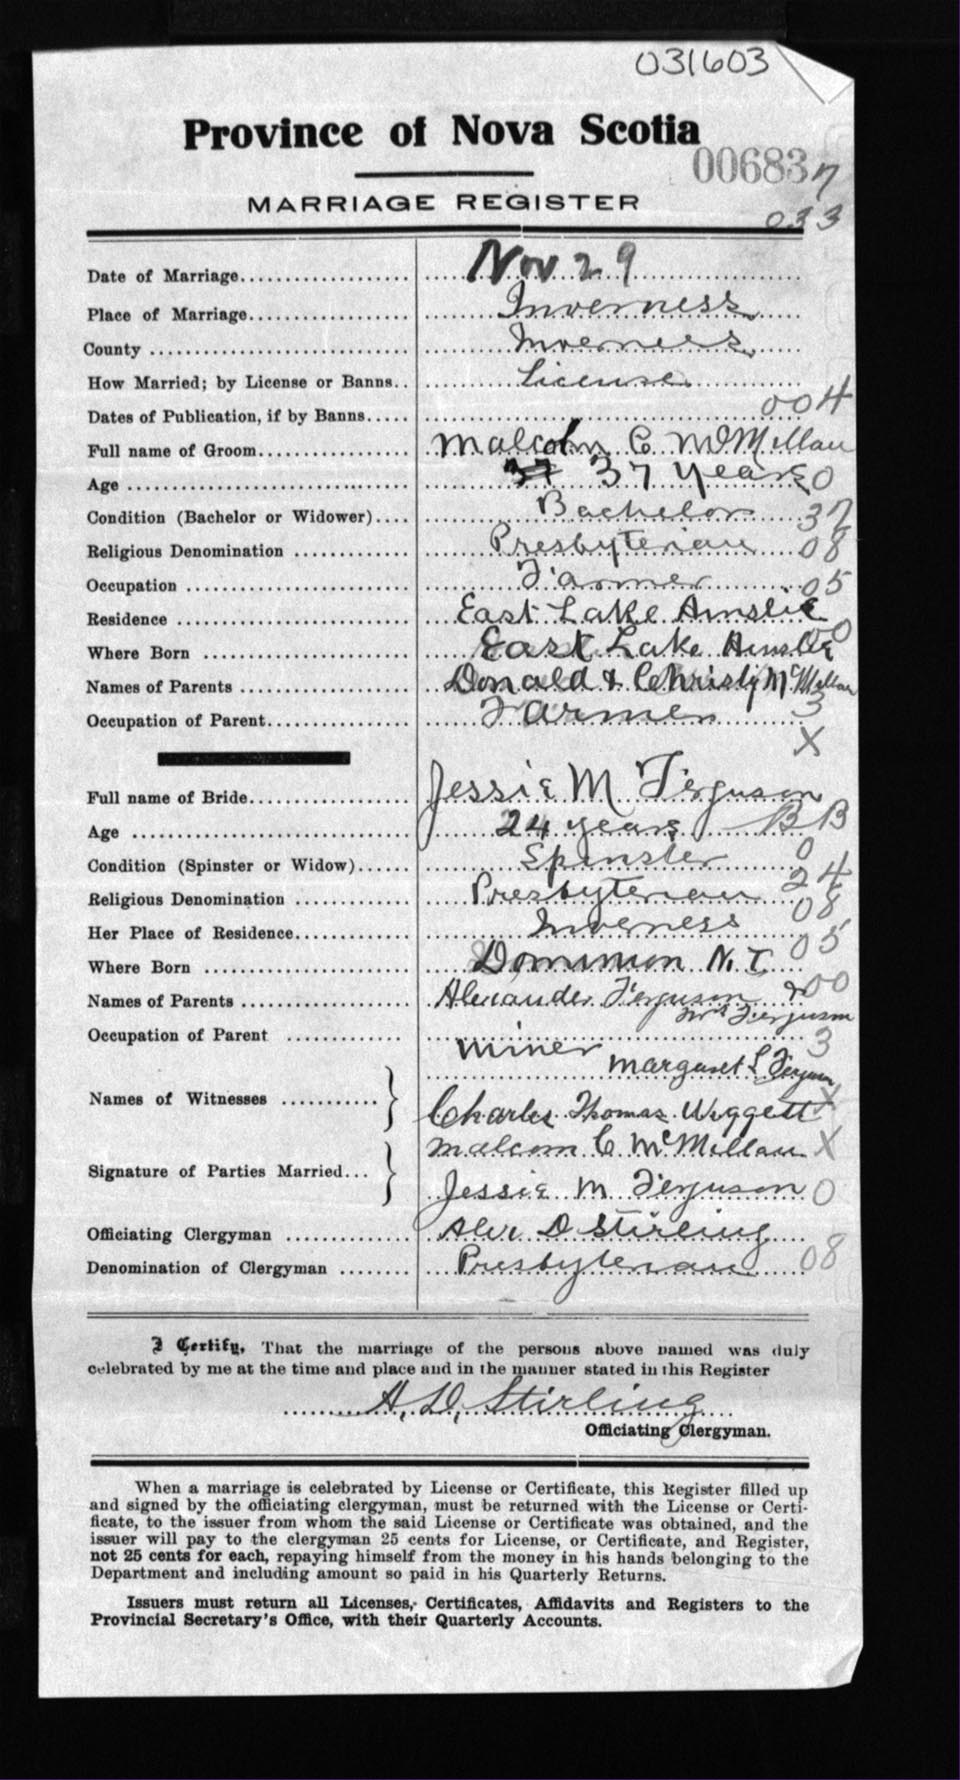 031603
Province of Nova Scotia
006837
MARRIAGE REGISTER
033
Date of Marriage.................... Nov 29
Place of Marriage.................. Inverness
County ............................. Inverness
How Married; by License or Banns.. License
Dates of Publication, if by Banns..... 004
Full name of Groom.................. Malcolm C McMillan
Age ................................ 37 37 Years 0
Condition (Bachelor or Widower).... Bachelor 37
Religious Denomination ............. Presbyterian 08
Occupation ......................... Farmer 05
Residence .......................... East Lake Ainslie
Where Born ......................... East Lake Ainslie 00
Names of Parents ................... Donald & Christy McMillan
Occupation of Parent................ Farmer 3
X
Full name of Bride.................. Jessie M Ferguson
Age ................................ 24 years BB
Condition (Spinster or Widow)...... Spinster 0
Religious Denomination ............. Presbyterian 24
Her Place of Residence.............. Inverness 08
Where Born ......................... Dominion N.I. 05
Names of Parents ................... Alexander Ferguson & 00
Mrs Ferguson
Occupation of Parent ............... Miner 3
Margaret L Ferguson
Names of Witnesses ........... } Charles Thomas Wiggett X
Malcom C McMillan X
Signature of Parties Married... } Jessie M Ferguson 0
Officiating Clergyman .............. Alex D Stirling
Denomination of Clergyman ........ Presbyterian 08
I Certify, That the marriage of the persons above named was duly
celebrated by me at the time and place and in the manner stated in this Register
A. D. Stirling
Officiating Clergyman.
When a marriage is celebrated by License or Certificate, this Register filled up
and signed by the officiating clergyman, must be returned with the License or Certi-
ficate, to the issuer from whom the said License or Certificate was obtained, and the
issuer will pay to the clergyman 25 cents for License, or Certificate, and Register,
not 25 cents for each, repaying himself from the money in his hands belonging to the
Department and including amount so paid in his Quarterly Returns.
Issuers must return all Licenses, Certificates, Affidavits and Registers to the
Provincial Secretary's Office, with their Quarterly Accounts.